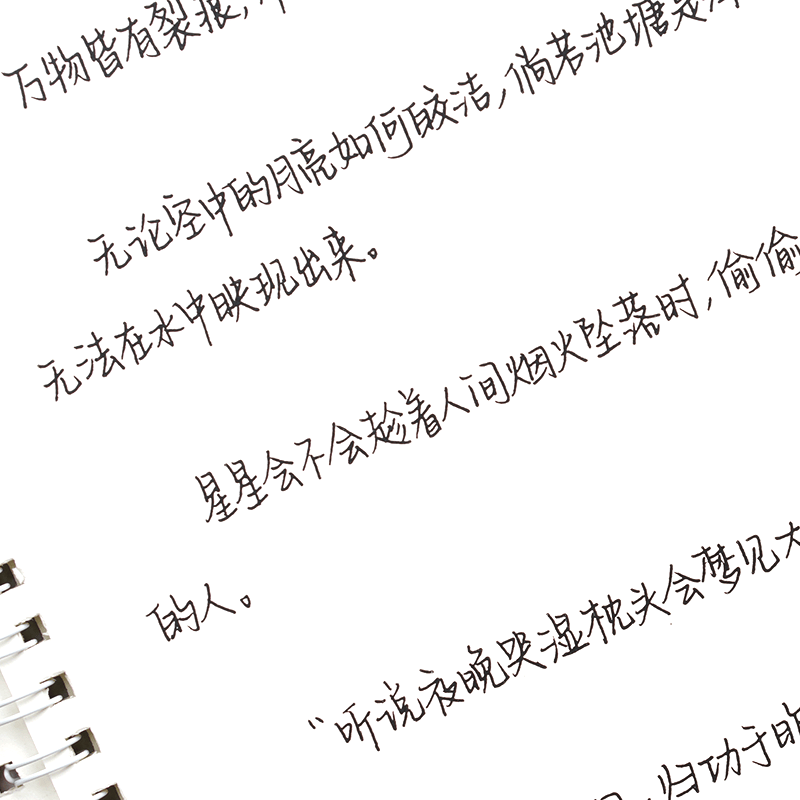 万物皆有裂痕，
无论空中的月亮如何皎洁，倘若池塘是
无法在水中映现出来。
星星会不会趁着人间烟火坠落时，偷偷
的人。
“听说夜晚哭湿枕头会梦见大
归功于昨